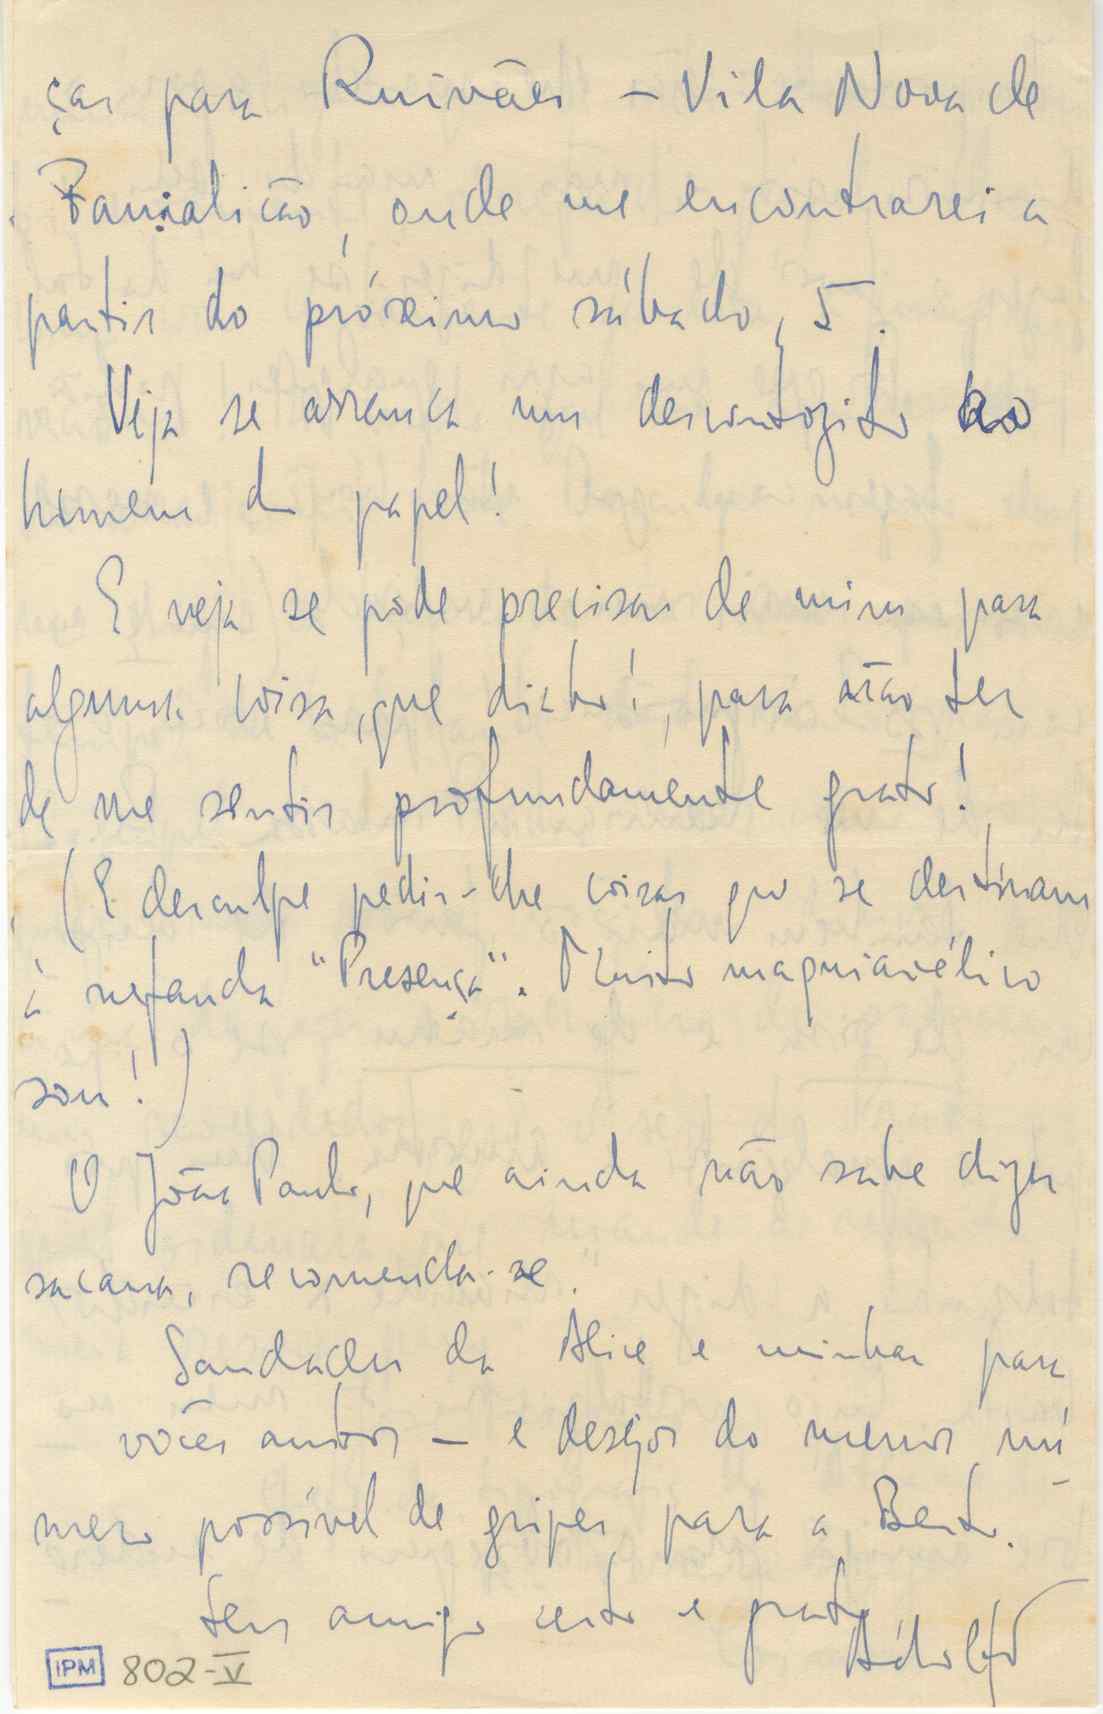 ças para Ruivães – Vila Nova de
Famalicão, onde me encontrarei a
partir do próximo sábado, 5.
Veja se arranca um descontozito ao
homem do papel!
E veja se pode precisar de mim para
alguma coisa, que diabo!, para não ter
de me sentir profundamente grato!
(E desculpe pedir-lhe coisas que se destinam
à nefanda "Presença". Muito maquiavélico
sou!)
O João Paulo, que ainda não sabe dizer
sacana, recomenda-se.
Saudades da Alice e minhas para
vocês ambos – e desejos do menor nú
mero possível de gripes para a Berta.
Seu amigo certo e grato
Adolfo
IPM 802-V